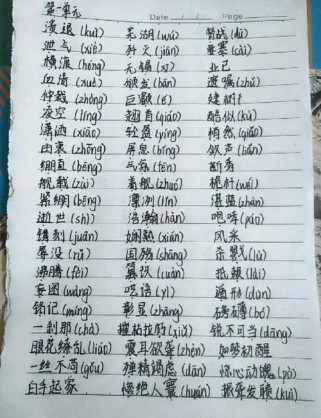 第一单元
Date Page
溃退 (kuì) 芜湖 (wú) 督战 (dū)
泄气 (xiè) 歼灭 (jiān) 要塞 (sài)
横渡 (héng) 无锡 (xī) 业已
仲裁 (zhòng) 巨 (è) 建树
凌空 (líng) 翘首 (qiáo) 酷似 (kù)
潇洒 (xiāo) 轻盈 (yíng) 悄然 (qiǎo)
由衷 (zhōng) 屏息 (bǐng) 敛声 (liǎn)
绷直 (bēng) 气氛 (fēn) 新秀
舰载 (zài) 着舰 (zhuó) 桅杆 (wéi)
紧绷 (bēng) 凛冽 (lǐn) 湛蓝 (zhàn)
逝世 (shì) 浩瀚 (hàn) 咆哮 (páo)
镌刻 (juān) 娴熟 (xián) 风采
屠戮 (lù) 国殇 (shāng)
沸腾 (fèi) 篡改 (cuàn) 抵赖 (lài)
妄图 (wàng) 呓语 (yì) 遁形 (dùn)
铭记 (míng) 彰显 (zhāng) 磅礴 (bó)
一刹那 (chà) 摧枯拉朽 (xiǔ) 锐不可当 (dāng)
眼花缭乱 (liáo) 震耳欲聋 (zhèn) 如梦初醒
一丝不苟 (gǒu) 殚精竭虑 (dān) 惊心动魄 (pò)
白手起家 惨绝人寰 (huán) 振聋发聩 (kuì)